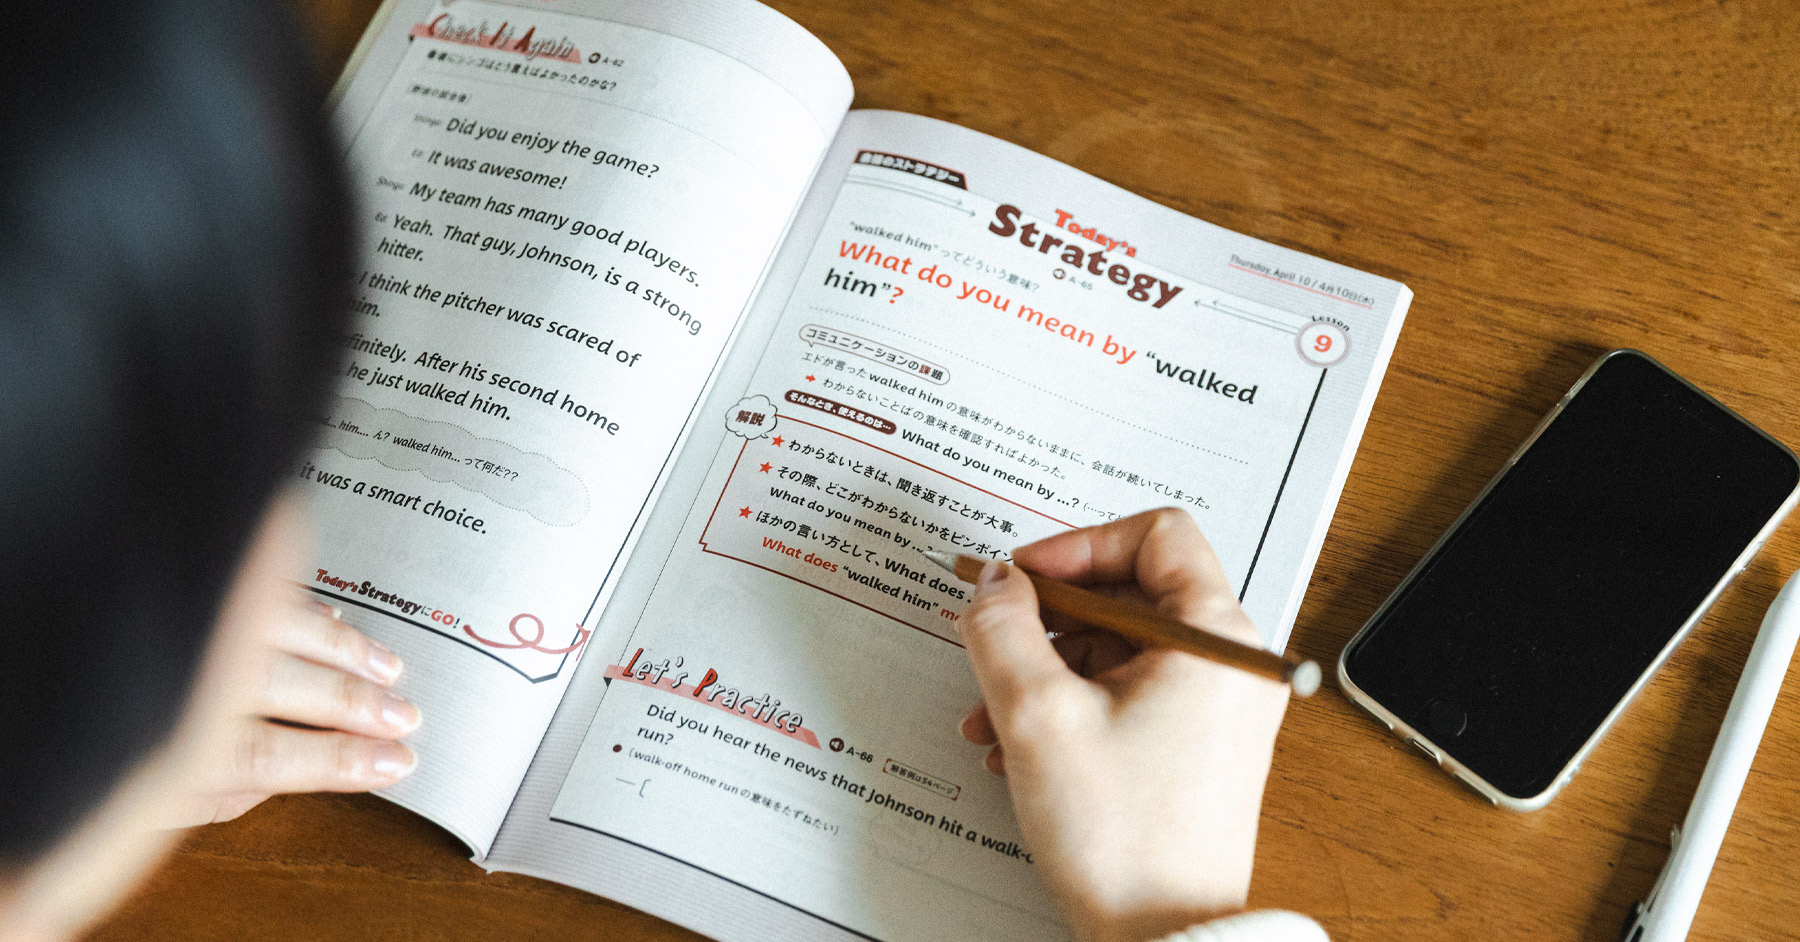 Check It Again
A-62
最後にシンゴはどう言えばよかったのかな?
[野球の試合後]
Shingo: Did you enjoy the game?
Ed: It was awesome!
Shingo: My team has many good players.
Ed: Yeah. That guy, Johnson, is a strong
hitter.
I think the pitcher was scared of
him.
finitely. After his second home
he just walked him.
him.... ん? walked him...って何だ??
it was a smart choice.
Today's StrategyにGO!
会話のストラテジー
Today's
Strategy
A-65
Thursday, April 10 / 4月10日(木)
Lesson
9
"walked him"ってどういう意味?
What do you mean by "walked
him"?
コミュニケーションの課題
エドが言ったwalked himの意味がわからないままに、会話が続いてしまった。
➔ わからないことばの意味を確認すればよかった。
そんなとき、使えるのは… What do you mean by ...? (…って
解説
★ わからないときは、聞き返すことが大事。
★ その際、どこがわからないかをピンポイン
What do you mean by ...?
★ ほかの言い方として、What does
What does "walked him"
Let's Practice
A-66
解答例は54ページ
Did you hear the news that Johnson hit a walk-
run?
● (walk-off home runの意味をたずねたい)
— [